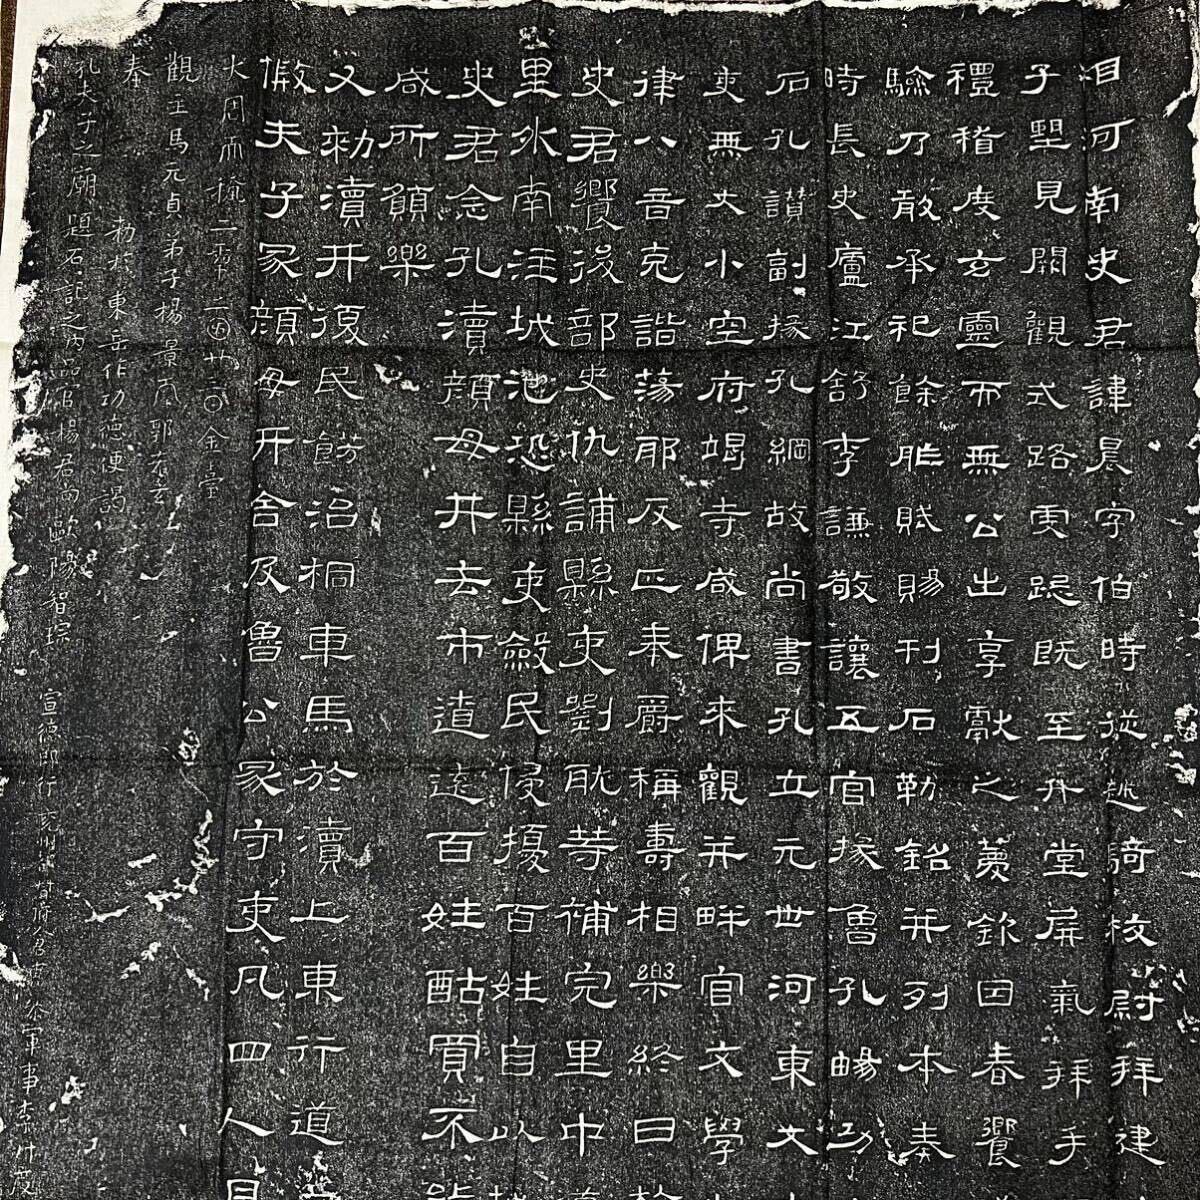 相河南史君諱晨字伯時從越騎校尉拜建
子朢見闕觀式路虔跽既至升堂屏氣拜手
禮稽度玄靈而無公出享獻之薦欽因春饗
驗乃敢承祀餘胙賦賜刊石勒銘并列本奏
時長史廬江舒李謙敬讓五官掾魯孔暘功
石孔讃副掾孔綱故尚書孔立元世河東大
吏無大小空府竭寺咸俾來觀并畔官文學
律八音克諧蕩耶反正奉爵稱壽相樂終日
史君饗後部史仇誧縣吏劉耽等補完里中
里外南注城池恐縣吏斂民侵擾百姓自以
史君念孔瀆顏母井去市遼遠百姓酤買不
咸所願樂
又勑瀆井復民餝治桐車馬於瀆上東行道
倣夫子冢顏母开舍及魯公冢守吏凡四人月
大周天授二年二月廿三日金臺
觀主馬元貞弟子楊景初郭希玄
奉
勅於東岳作功德便謁
孔夫子之廟題石記之內品官楊君尚歐陽智琮 宣德郎行兖州都督府倉曹叅軍事李叔度